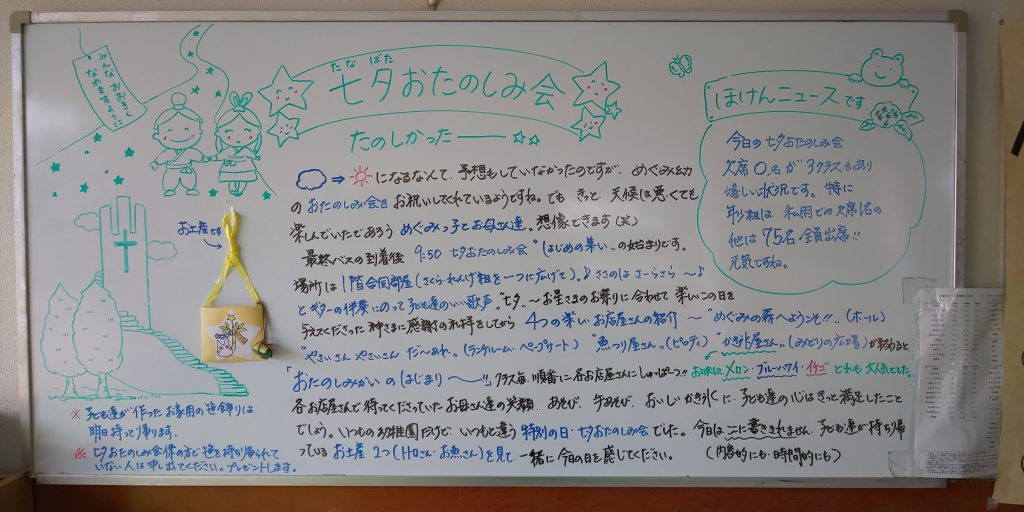 みんなおおきく
なれますように
たなばた
七夕おたのしみ会
たのしかった
ほけんニュースです
今日の七夕おたのしみ会
欠席0名が3クラスもあり
嬉しい状況です。特に
年少組は、私用での欠席1名の
他は75名全員出席!!
元気ですね。
お土産です
になるなんて、予想もしていなかったのですが、めぐみ幼
のおたのしみ会をお祝いしてくれているようですね。でも きっと 天候は悪くても
楽しんでいたであろう めぐみっ子とお母さん達。想像できます(笑)
最終バスの到着後 9:50 七夕おたのしみ会 "はじめの集い" の始まりです。
場所は 1階合同部屋(さくら・れんげ組を一つに広げて)。♪ささのは さーらさら 〜♪
とギターの伴奏にのって子ども達のいい歌声。"七夕"〜お星さまのお祭りに合わせて 楽しいこの日を
与えてくださった 神さまに感謝の礼拝をしてから 4つの楽しいお店屋さんの紹介 〜"めぐみの森へようこそ!!"(ホール)
"やさいさん やさいさん だ〜あれ"(ランチルーム・ペープサート) "魚つり屋さん"(ピッティ) "かき氷屋さん"(みどりの広場)が終わると、
お味は、メロン・ブルーハワイ・イチゴ どれも 大人気でした。
「おたのしみかい の はじまり 〜〜!!」クラス毎、順番に各お店屋さんにしゅっぱーつ!!
各お店屋さんで待ってくださっていたお母さん達の笑顔、あそび、手あそび、おいしいかき氷に、子ども達の心はきっと満足したこと
でしょう。いつものお幼稚園だけど、いつもと違う 特別の日・七夕おたのしみ会でした。今日はここに書ききれません。子ども達が持ち帰
っている お土産 2つ(お魚さん)を見て 一緒に今日の日を感じてください。 (内容的にも・時間的にも)
※ 子ども達が作ったお家用の笹飾りは
明日持って帰ります。
※ 七夕おたのしみ会係の方で笹を持ち帰られて
いない人は申し出てください。プレゼントします。